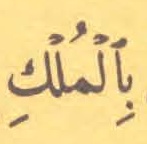 بِٱلۡمُلۡكِ